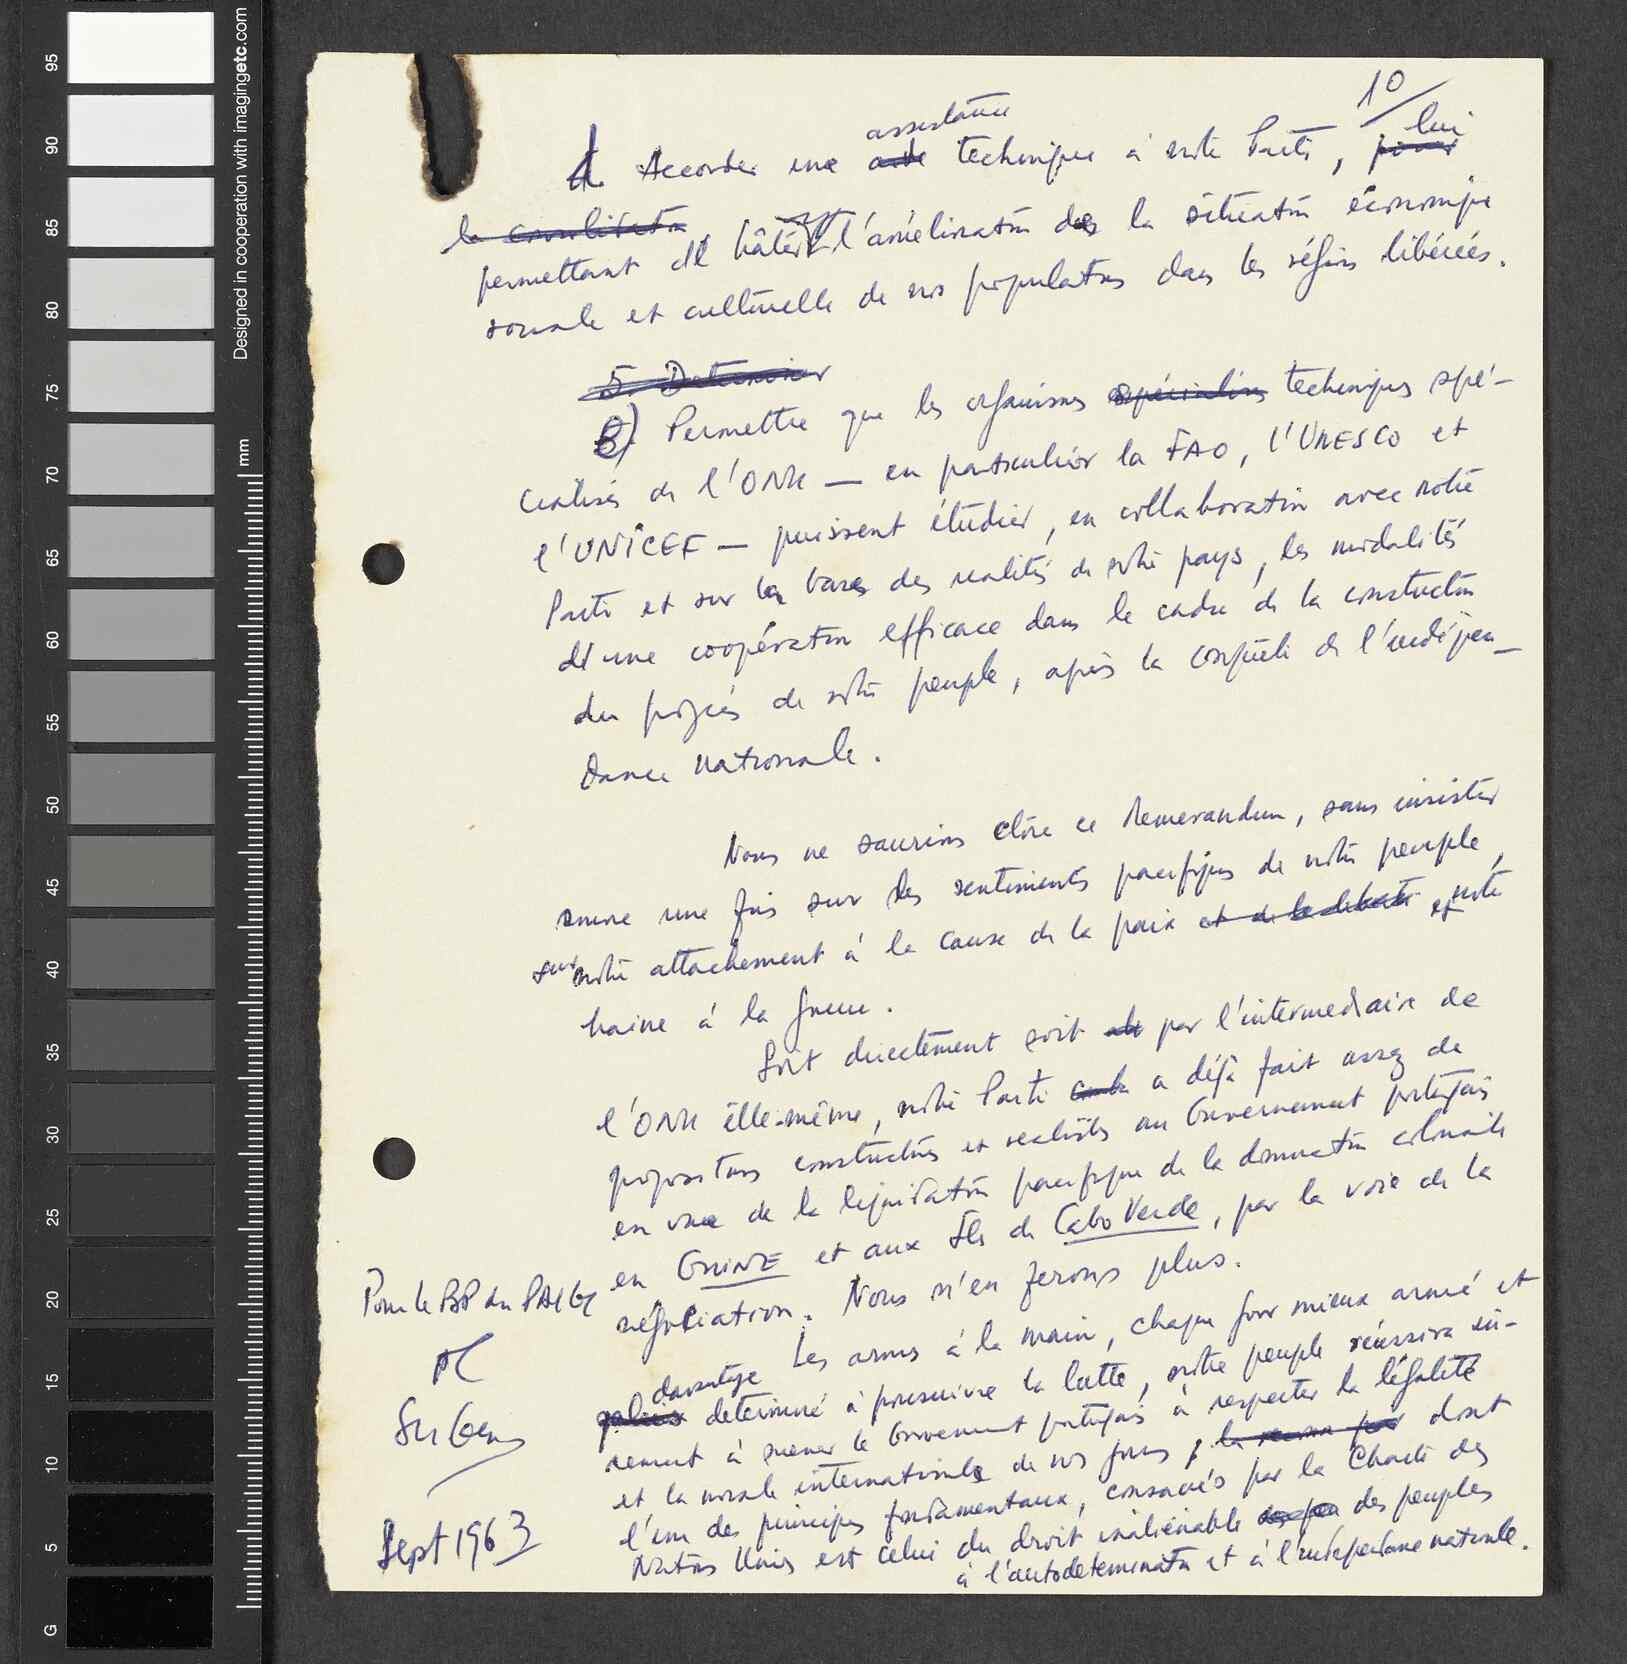 10
assistance
d. Accorder une aide technique à notre Parti, pour lui
la consolidation
permettant de hâter l'amélioration de la situation économique
sociale et culturelle de nos populations dans les régions libérées.
5. Determiner
e) Permettre que les organismes spécialisés techniques spé-
cialisés de l'ONU — en particulier la FAO, l'UNESCO et
l'UNICEF — puissent étudier, en collaboration avec notre
Parti et sur la base des realités de notre pays, les modalités
d'une coopération efficace dans le cadre de la construction
du progrès de notre peuple, après la conquête de l'indépen-
dance nationale.
Nous ne saurions clore ce Memorandum, sans insister
encore une fois sur les sentiments pacifiques de notre peuple,
sur notre attachement à la cause de la paix et de la liberté et notre
haine à la guerre.
Soit directement soit par l'intermediaire de
l'ONU elle-même, notre Parti a déjà fait assez de
propositions constructives et realistes au Gouvernement portugais
en vue de la liquidation pacifique de la domination coloniale
en GUINÉE et aux Iles de Cabo Verde, par la voie de la
négociation. Nous n'en ferons plus.
Les armes à la main, chaque jour mieux armé et
davantage
determiné à poursuivre la lutte, notre peuple réussira sû-
rement à amener le Gouvernement portugais à respecter la légalité
et la morale internationale de nos jours, dont
l'un des principes fondamentaux, consacrés par la Charte des
Nations Unies est celui du droit inaliénable des peuples
à l'autodetermination et à l'indépendance nationale.
Pour le BP du PAIGC
Sec Gen
Sept 1963
95
90
85
80
75
70
65
60
55
50
45
40
35
30
25
20
15
10
5
G
mm
Designed in cooperation with imagingetc.com